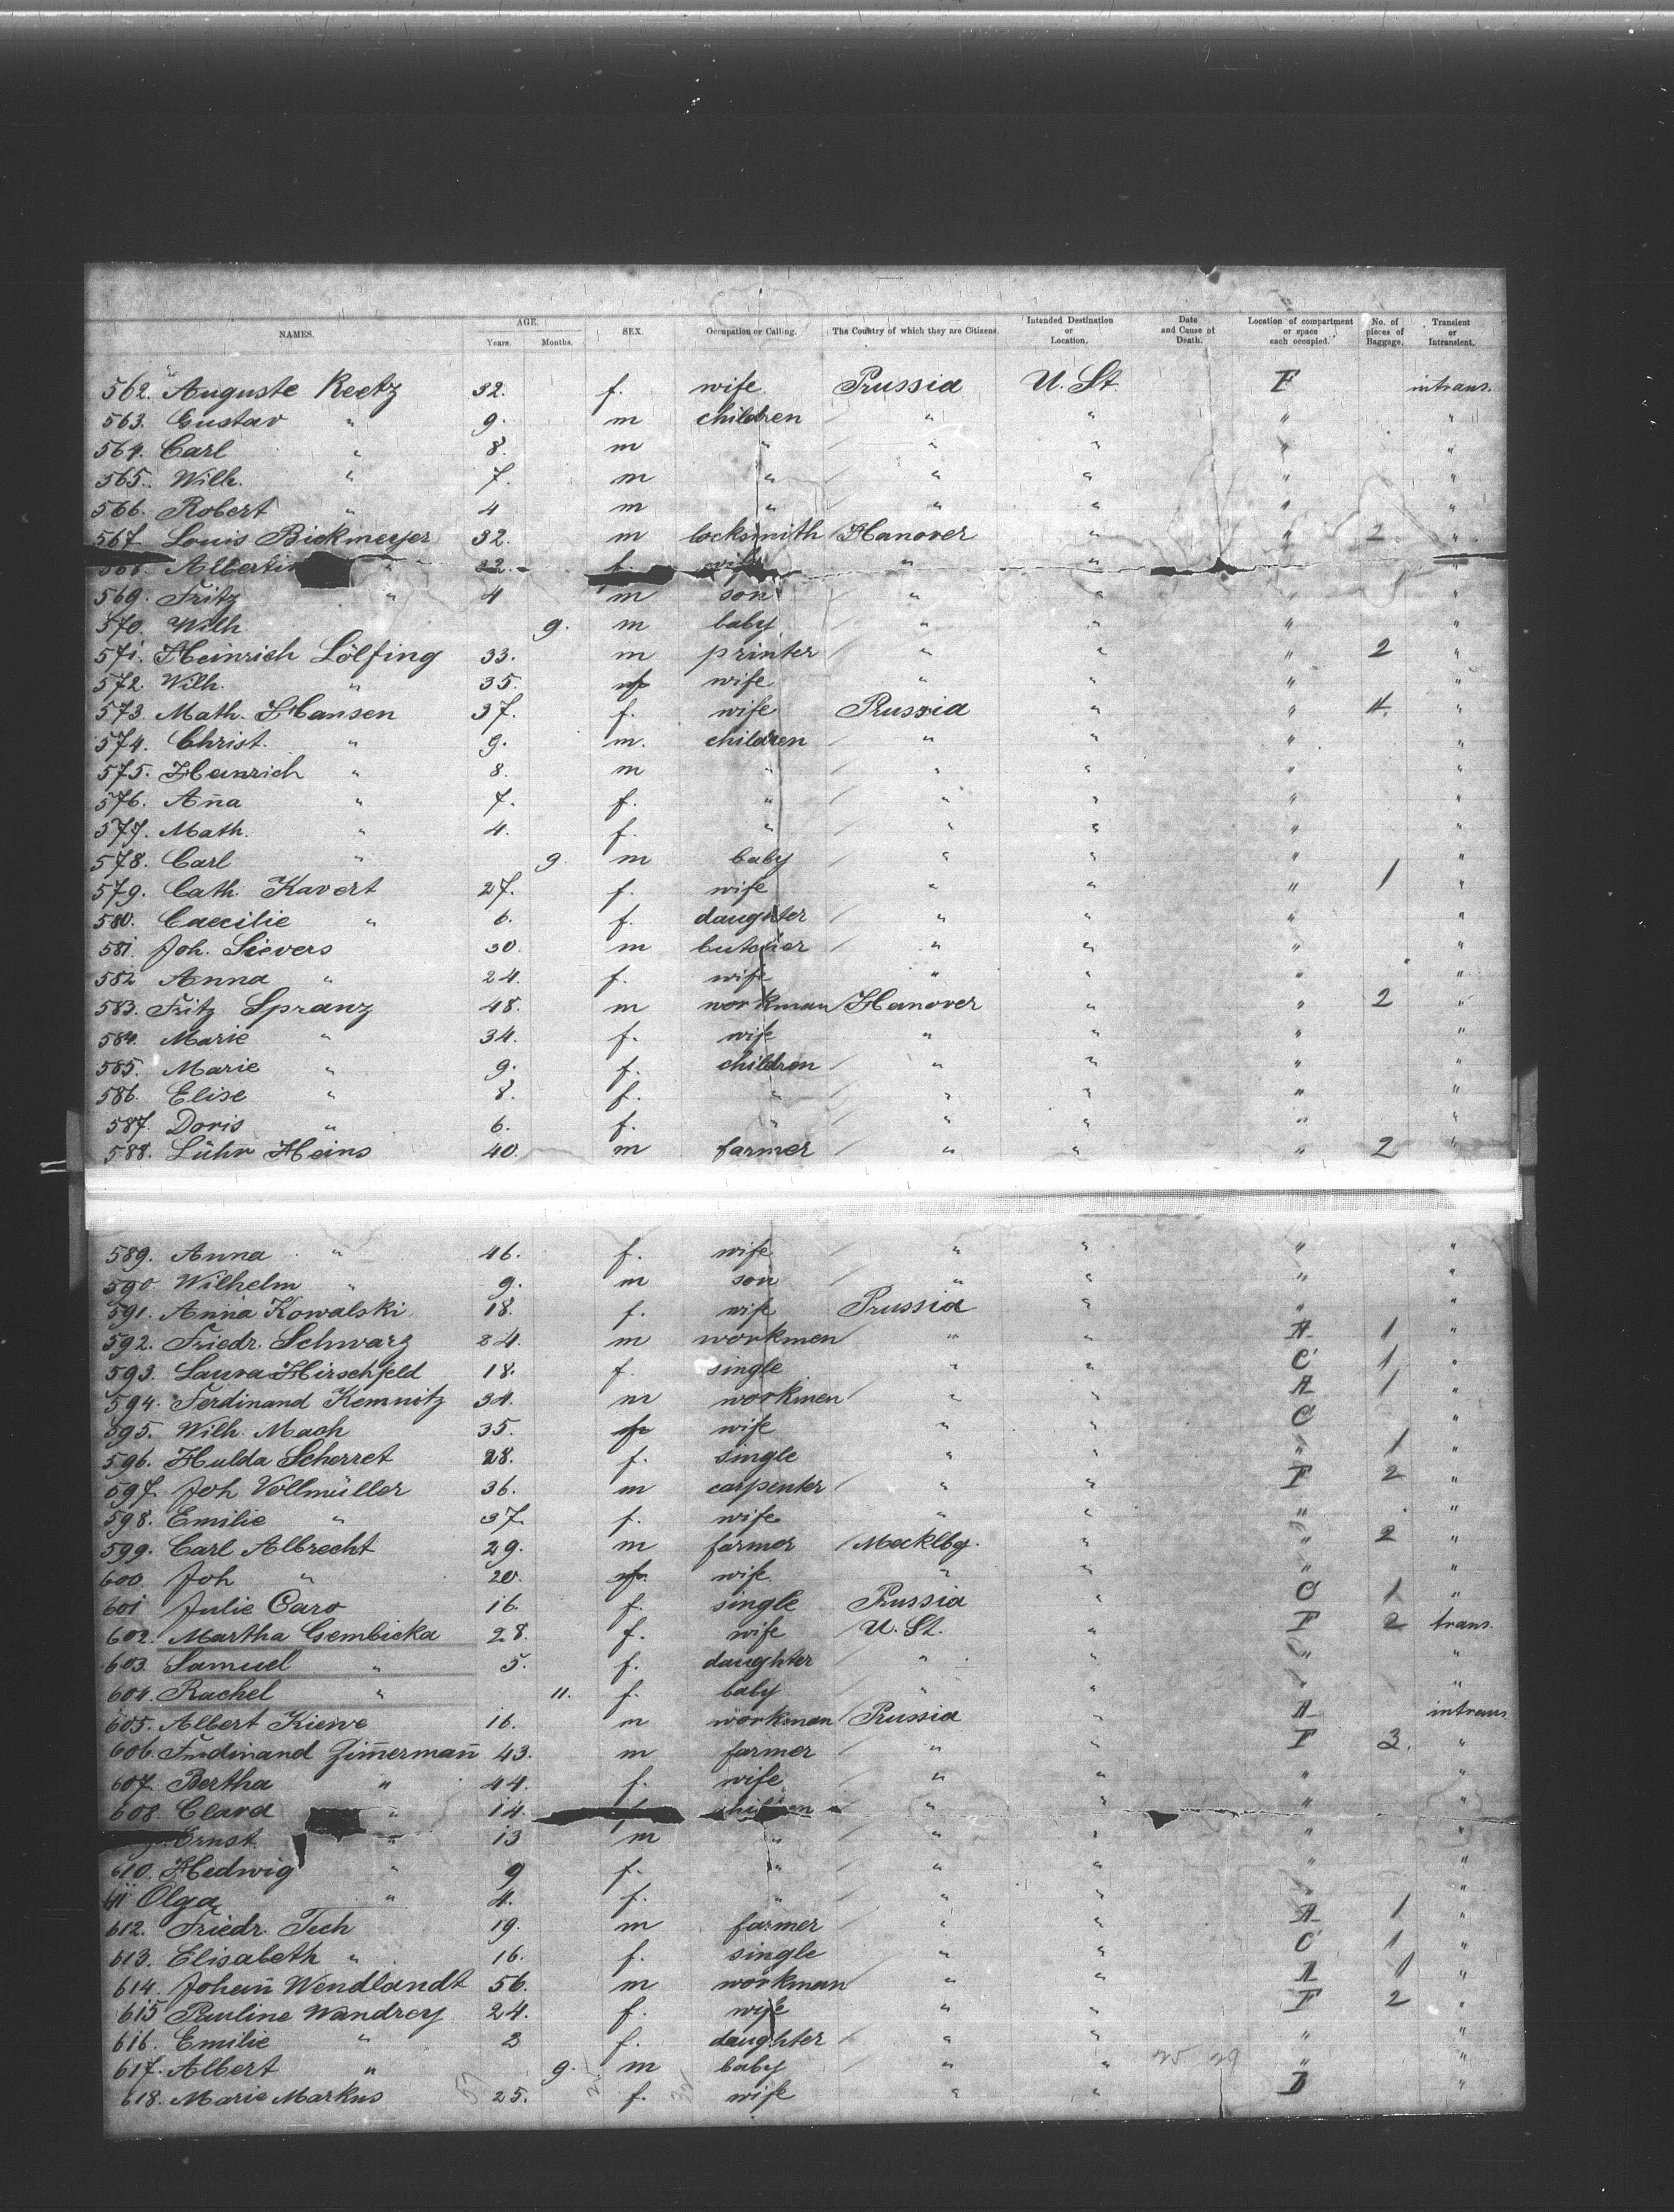 NAMES. AGE. Years. Months. SEX. Occupation or Calling. The Country of which they are Citizens. Intended Destination or Location. Date and Cause of Death. Location of compartment or space each occupied. No. of pieces of Baggage. Transient or Intransient.
562. Auguste Reetz 32. f. wife Prussia U. St. F intrans.
563. Gustav " 9. m children " " " "
564. Carl " 8. m " " " " "
565. Wilh. " 7. m " " " " "
566. Robert " 4 m " " " " "
567. Louis Bickmeyer 32. m locksmith Hanover " " 2 "
568. Albertin " 22. f. wife " " "
569. Fritz " 4 m son " " " "
570. Wilh. 9. m baby " " " "
571. Heinrich Lölfing 33. m printer " " " 2 "
572. Wilh. " 35. f wife " " " "
573. Math. Hansen 37. f. wife Prussia " " 4. "
574. Christ. " 9. m. children " " " "
575. Heinrich " 8. m " " " " "
576. Ana " 7. f. " " " " "
577. Math. " 4. f. " " " " "
578. Carl " 9. m baby " " " "
579. Cath. Kavert 27. f. wife " " " 1 "
580. Caecilie " 6. f. daughter " " " "
581. Joh. Sievers 30. m butcher " " " "
582 Anna " 24. f. wife " " " "
583. Fritz Spranz 48. m workman Hanover " " 2 "
584. Marie " 34. f. wife " " " "
585. Marie " 9. f. children " " " "
586. Elise " 8. f. " " " " "
587. Doris " 6. f. " " " " "
588. Lühr Heins 40. m farmer " " " 2 "
589. Anna " 46. f. wife " " " "
590. Wilhelm " 9. m son " " " "
591. Anna Kowalski 18. f. wife Prussia " " "
592. Friedr. Schwarz 24. m workmen " " A 1 "
593. Laura Hirschfeld 18. f. single " " C 1 "
594. Ferdinand Kemnitz 34. m workmen " " A 1 "
595. Wilh. Mach 35. f wife " " C "
596. Hulda Scherret 28. f. single " " " 1 "
597. Joh Vollmüller 36. m carpenter " " F 2 "
598. Emilie " 37. f. wife " " " "
599. Carl Albrecht 29. m farmer Mecklbg. " " 2 "
600. Joh " 20. f. wife " " " "
601 Julie Caro 16. f. single Prussia " C 1 "
602. Martha Gembicka 28. f. wife U. St. " F 2 trans.
603. Samuel " 5. f. daughter " " " "
604. Rachel " 11. f. baby " " " "
605. Albert Kiewe 16. m workman Prussia " A intrans
606. Ferdinand Zimerman 43. m farmer " " F 3. "
607. Bertha " 44. f. wife " " " "
608. Clara " 14. children " " " "
Ernst " 13 m " " " " "
610. Hedwig " 9 f. " " " " "
611 Olga " 4. f. " " " " "
612. Friedr. Tech 19. m farmer " " A 1 "
613. Elisabeth " 16. f. single " " C 1 "
614. Johan Wendlandt 56. m workman " " A 1 "
615 Pauline Wandrey 24. f. wife " " F 2 "
616. Emilie " 3 f. daughter " " " "
617. Albert " 9. m baby " " " "
618. Marie Markus 25. f. wife " " D "